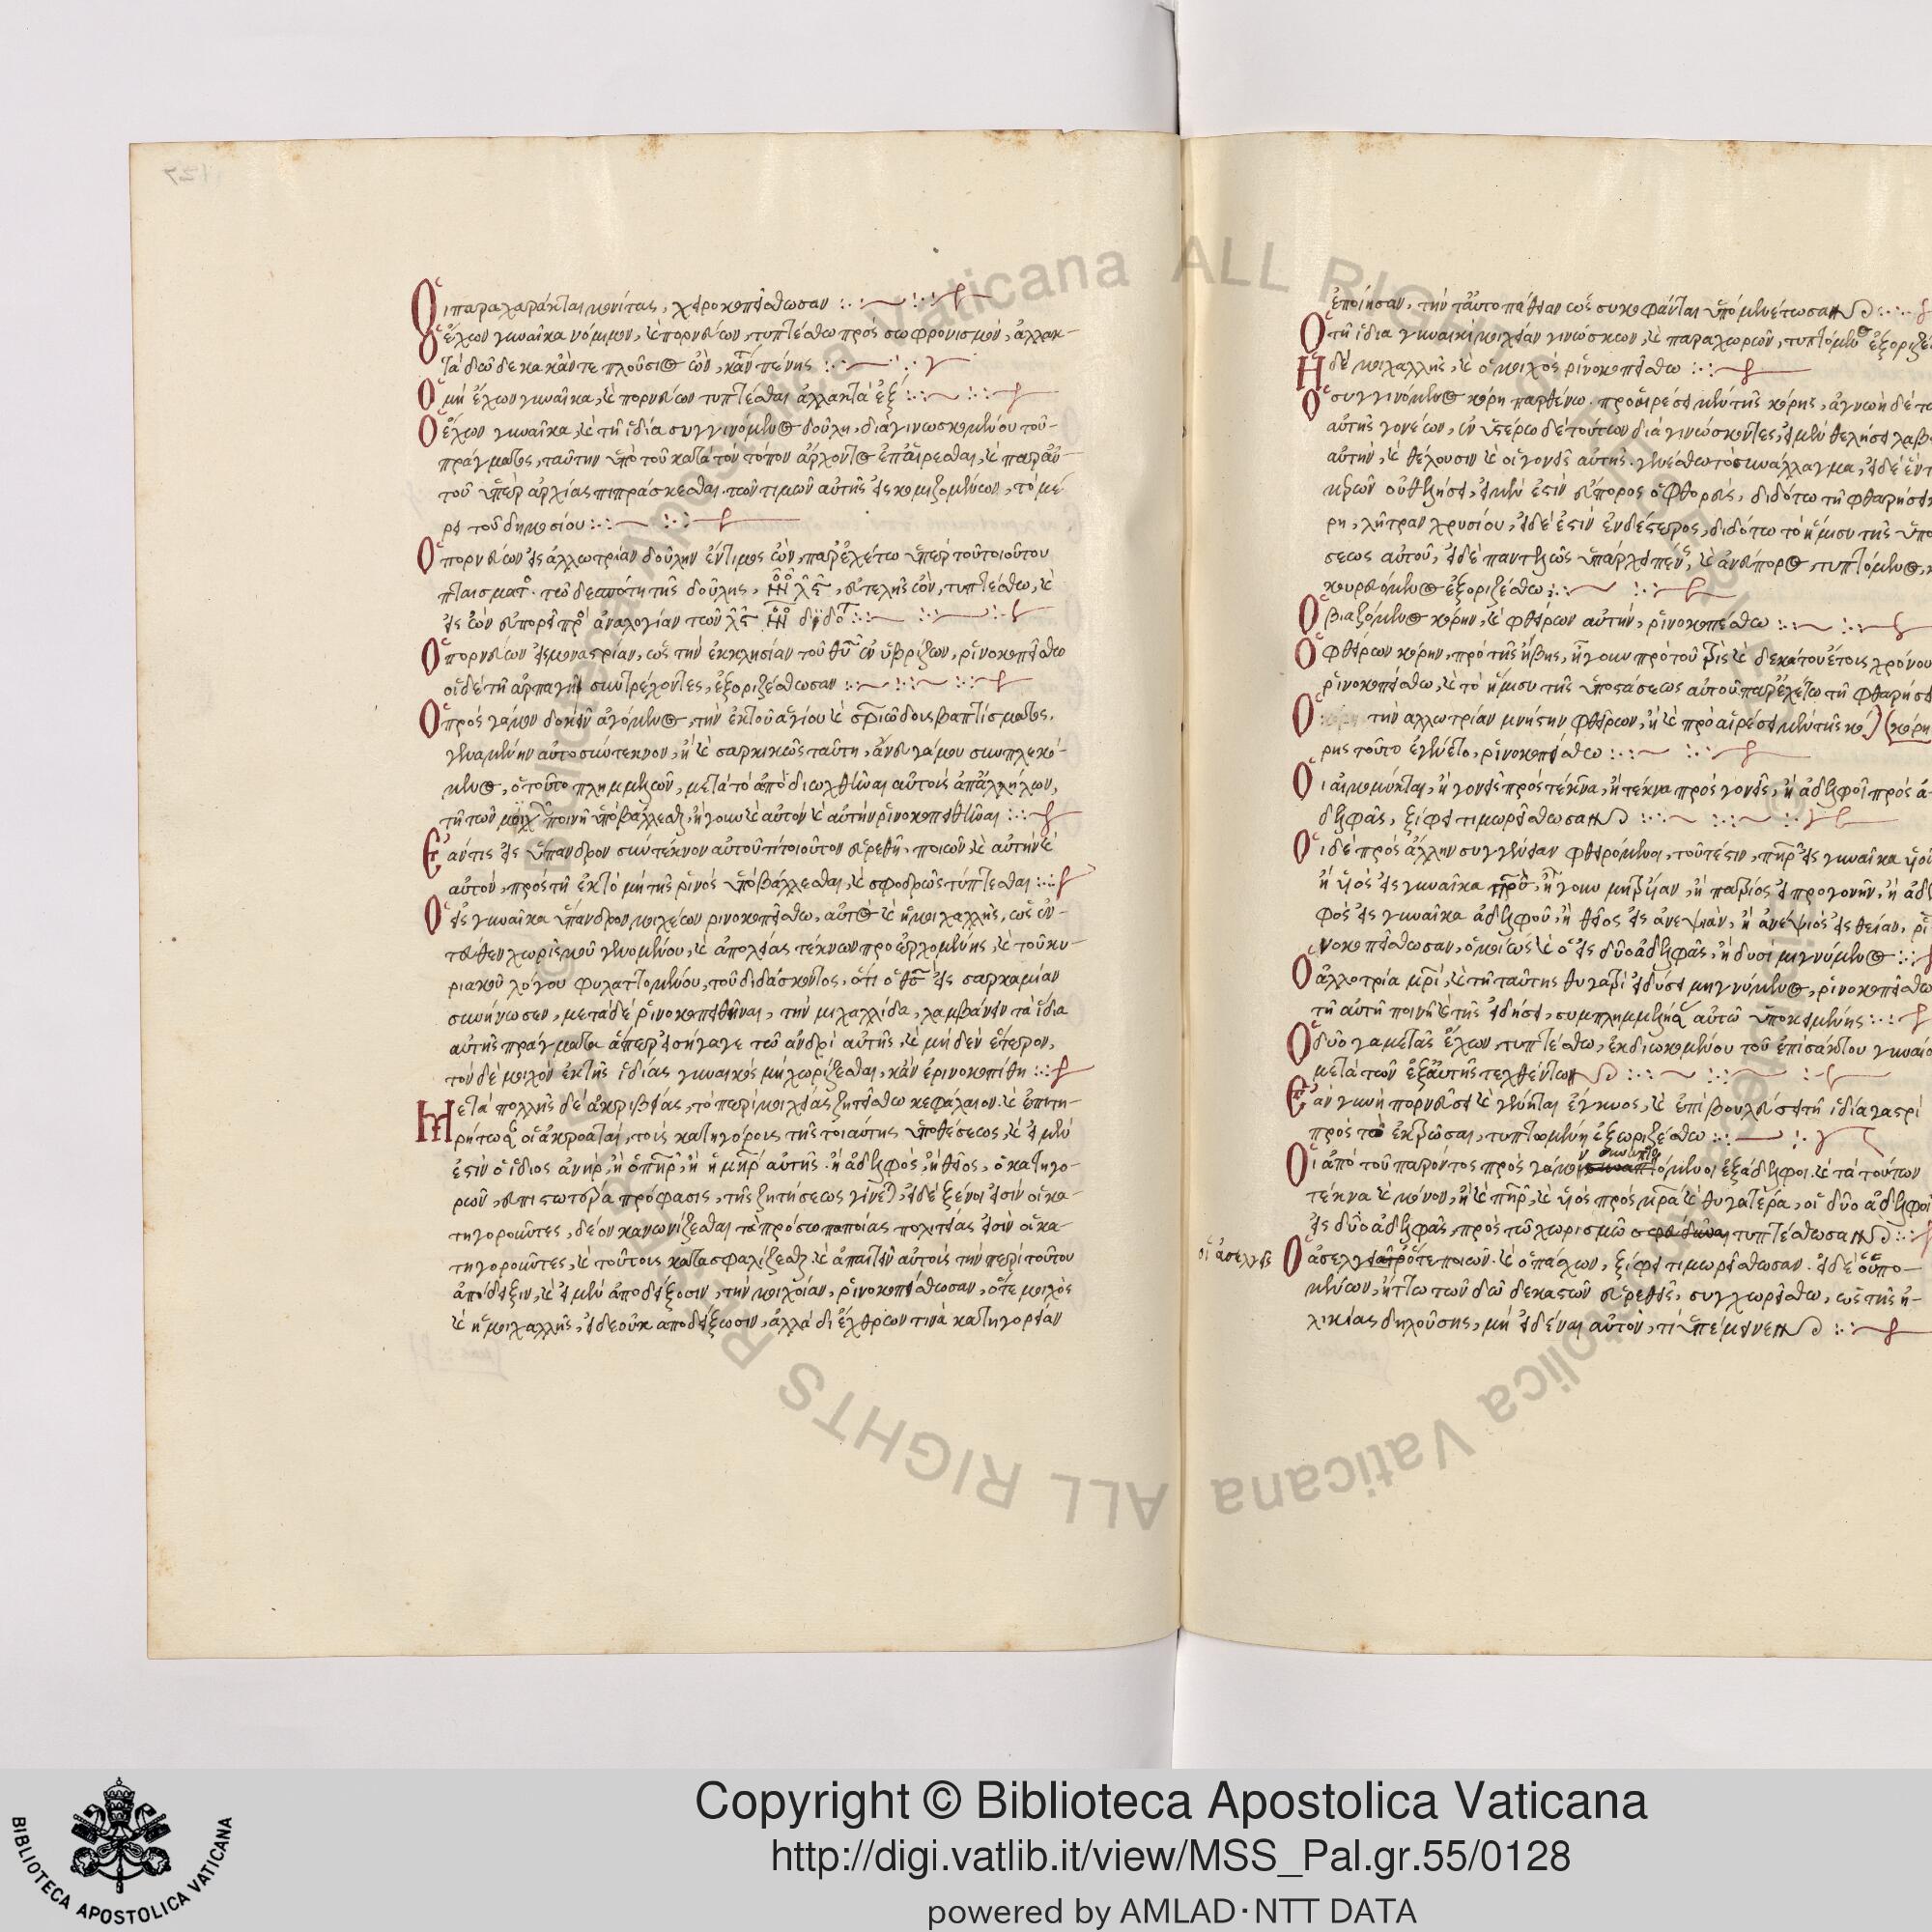 Οἱ παραχαράκται μονίτας, χειροκοπείσθωσαν
ὁ ἔχων γυναῖκα νόμιμον, καὶ πορνεύων, τυπτέσθω πρὸς σωφρονισμὸν, ἀλλακ-
τὰ δώδεκα κἄν τε πλούσιος ὢν, κἂν πένης
Ὁ μὴ ἔχων γυναῖκα, καὶ πορνεύων τυπτέσθαι ἀλλακτὰ ἓξ
Ὁ ἔχων γυναῖκα, καὶ τῇ ἰδία συγγινόμενος δούλη, διαγινωσκομένου τοῦ
πράγματος, ταύτην ὑπὸ τοῦ κατὰ τὸν τόπον ἄρχοντος ἐπαίρεσθαι, καὶ παρ' αὐ-
τοῦ ὑπερ αρχίας πιπράσκεσθαι. τῶν τιμῶν αὐτῆς εἰσκομιζομένων, τὸ μέ
ρει τοῦ δημοσίου
Ὁ πορνεύων εἰς ἀλλωτρίαν δούλην ἔντιμος ὢν, παρεχέτω ὑπερ τοῦ τοιούτου
πταίσματος τῶ δεσπότη τῆς δούλης, λϛ, εὐτελὴς ὢν, τυπτέσθω, καὶ
Ὁ πορνεύων εἰς μοναστρίαν, ὡς τὴν ἐκκλησίαν τοῦ θυ ἐνυβρίζων, ῥινοκοπείσθω
οἱ δὲ τῆ ἁρπαγῆ συντρέχοντες, ἐξοριζέσθωσαν
Ὁ πρὸς γάμον δοκεῖν ἀγόμενος, τὴν ἐκ τοῦ ἁγίου καὶ σριώδους βαπτίσματος,
γεναμένην αὐτο σύντεκνον, ἢ καὶ σαρκικῶς ταύτη, ἄνευ γάμου συμπλεκό-
μενος, ὁ τοῦτο πλημμελῶν, μετὰ τὸ ἀποδιωχθῆναι αὐτοὺς ἀπ' ἀλλήλων,
τῆ τῶν μοιχ ποινῆ ὑποβάλλεσθαι, ἤγουν καὶ αὐτὸν καὶ αὐτὴν ῥινοκοπειθῆναι
Ἐάν τις εἰς ὕπανδρον σύντεκνον αὐτοῦ τί τοιοῦτον εὑρεθῆ, ποιῶν, καὶ αὐτὴν καὶ
αὐτὸν, πρὸς τῆ ἐκτομή τῆς ῥινὸς ὑποβάλλεσθαι, καὶ σφοδρῶς τύπτεσθαι
Ὁ εἰς γυναῖκα ὕπανδρον μοιχεύων ῥινοκοπείσθω, αὐτός καὶ ἡ μοιχαλλὴς, ὡς ἐν-
τεύθεν χωρισμοῦ γενομένου, καὶ ἀπολείας τέκνων προερχομένης, καὶ τοῦ κυ-
ριακοῦ λόγου φυλαττομένου, τοῦ διδάσκοντος, ὅτι ὁ θς εἰς σαρκα μίαν
συνήνωσεν, μετὰ δὲ ῥινοκοπειθῆναι, τὴν μιχαλλίδα, λαμβάνειν τὰ ἴδια
αὐτῆς πράγματα ἅπερ εἰσήγαγε τῶ ἀνδρὶ αὐτῆς, καὶ μηδὲν ἕτερον,
τὸν δὲ μοιχὸν ἐκ τῆς ἰδίας γυναικὸς μὴ χωρίζεσθαι, κἂν ἐρινοκοπίθη
Μετὰ πολλῆς δὲ ἀκριβείας, τὸ περὶ μοιχείας ζητείσθω κεφάλαιον. καὶ ἐπιτη-
ρήτωσαν οἱ ἀκροαταὶ, τοὺς κατηγόρους τῆς τοιαύτης ὑποθέσεως, καὶ εἰ μὲν
ἐστὶν ὁ ἴδιος ἀνὴρ, ἢ ὁ πηρ, ἢ ἡ μηρ αὐτῆς. ἢ ἀδελφὸς, ἢ θεῖος, ὁ κατηγο-
ρῶν, ευπιστωτέρα πρόφασις, τῆς ζητήσεως γίνεται, εἰ δὲ ξένοι εἰσὶν οἱ κα-
τηγοροῦντες, δέον κανωνίζεσθαι τὰ πρόσωπα ποίας πολιτείας εἰσὶν οἱ κα-
τηγοροῦντες, καὶ τούτοις κατασφαλίζεσθαι καὶ ἀπαιτεῖν αὐτοὺς τὴν περὶ τούτου
ἀπόδειξιν, καὶ εἰ μὲν ἀποδείξοσιν, τὴν μοιχοίαν, ῥινοκοπείσθωσαν, ὅτε μοιχὸς
καὶ ἡ μοιχαλλὴς, εἰ δε οὐκ αποδείξωσιν, ἀλλὰ δι' ἔχθρων τινὰ κατηγορείαν
ἐποίησαν, τὴν ταυτοπάθειαν ὡς συκοφάνται ὑπομενέτωσαν
Ὁ τῆ ἰδία γυναικὶ μοιχείαν γινώσκων, καὶ παραχωρῶν, τυπτόμενος ἐξοριζέ
Ἡ δὲ μοιχαλλὴς, καὶ ὁ μοιχὸς ῥινοκοπείσθω
Ὁ συγγινόμενος κόρη παρθένω. προαιρέσει μὲν τῆς κόρης, ἀγνωή δὲ τῶ
αὐτῆς γονέων, ἐν ὑστέρω δὲ τούτων διαγινώσκοντες, εἰ μὲν θελήσει λαβ
αὐτὴν, καὶ θέλουσιν καὶ οἱ γονεῖς αὐτῆς. γενέσθω τὸ συνάλλαγμα, εἰ δὲ ἓν τ
μερῶν οὐ θελήσει, εἰ μὲν ἐστὶν εὔπορος ὁ φθορεὺς, διδότω τῆ φθαρήσει
ρη, λήτραν χρυσίου, εἰ δέ ἐστιν ἐνδέστερος, διδότω τὸ ἥμισυ τῆς ὑπο
σεως αὐτοῦ, εἰ δὲ παντελῶς ὑπάρχει πένης, καὶ ἀνεύπορος, τυπτόμενος,
κουρευόμενος ἐξοριζέσθω
Ὁ βιαζόμενος κόρην, καὶ φθείρων αὐτὴν, ῥινοκοπείσθω
Ὁ φθείρων κόρην, πρὸ τῆς ἥβης, ἤγουν πρὸ τοῦ τρις καὶ δεκάτου ἔτους χρόνου
ῥινοκοπείσθω, καὶ τὸ ἥμισυ τῆς ὑποστάσεως αὐτοῦ παρεχέτω τῆ φθαρήσει
Ὁ τὴν αλλωτρίαν μνήστην φθείρων, ἢ καὶ προαιρέσει μὲν τῆς κό (κόρη
ρης τοῦτο ἐγένετο, ῥινοκοπείσθω
Οἱ αἱμομύκται, ἢ γονεῖς πρὸς τέκνα, ἢ τέκνα πρὸς γονεῖς, ἢ ἀδελφοὶ πρὸς ἀ-
δελφὰς, ξίφει τιμωρείσθωσαν
Οἱ δὲ πρὸς ἄλλην συγγένειαν φθειρόμενοι, τοῦτέστιν, πηρ εἰς γυναῖκα υἱοῦ
ἢ υἱὸς εἰς γυναῖκα πρς, ἤγουν μητρίαν, ἢ πατρίος εἰ προγονὴν, ἢ ἀδελ
φὸς εἰς γυναῖκα ἀδελφοῦ, ἢ θεῖος εἰς ἀνεψιὰν, ἢ ἀνέψιὸς εἰς θείαν, ῥι
νοκοπείσθωσαν, ὁμοίως καὶ ὁ εἰς δύο ἀδελφὰς, ἢ δυσὶ μιγνύμενος
Ὁ ἀλλοτρία μρὶ, καὶ τῆ ταύτης θυγατρὶ εἰδύσει μηγνύμενος, ῥινοκοπείσθω
τῆ αὐτῆ ποινῆ καὶ τῆς εἰδήσει, συμπλημμελησάσης αὐτῶ ὑποκειμένης
Ὁ δύο γαμετὰς ἔχων, τυπτέσθω, ἐκδιωκομένου τοῦ ἐπισάκτου γυναίου
μετὰ τῶν ἐξ αὐτῆς τεχθέντων
Ἐὰν γυνὴ πορνεύσει καὶ γένηται ἔγκυος, καὶ ἐπιβουλεύσει τῆ ἰδία γαστρὶ
πρὸς τὸ ἐκτρῶσαι, τυπτωμένη ἐξωριζέσθω
Οἱ ἀπὸ τοῦ παρόντος πρὸς γάμον συναπτόμενοι ἐξάδελφοι. καὶ τὰ τούτων
τέκνα καὶ μόνον, ἢ καὶ πηρ, καὶ υἱὸς πρὸς μρα καὶ θυγατέρα, οἱ δύο ἀδελφοὶ
εἰς δύο ἀδελφὰς, πρὸς τῶ χωρισμῶ τυπτέσθωσαν
οἱ ἀσελγεῖς
Ὁ ἀσελγὴς ὅτε ποιῶν. καὶ ὁ πάσχων, ξίφει τιμωρείσθωσαν. εἰ δὲ ὁ ὑπο-
μένων, ἥττω τῶν δώδεκα ετῶν εὑρεθεῖ, συγχωρείσθω, ὡς τῆς ἡ-
λικίας δηλούσης, μὴ εἰδέναι αὐτὸν, τί ὑπέμεινεν
Copyright © Biblioteca Apostolica Vaticana
http://digi.vatlib.it/view/MSS_Pal.gr.55/0128
powered by AMLAD·NTT DATA
BIBLIOTECA APOSTOLICA VATICANA